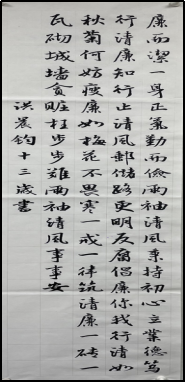 廉而潔一身正氣勤而儉兩袖清風秉持初心立業德篤
行清廉知行止清風郵儲路更明反腐倡廉你我行清如
秋菊何妨瘦廉如梅花不畏寒一戒一律筑清廉一磚一
瓦砌城墻貪賍枉步步難兩袖清風事事安
洪鈞十三歲書